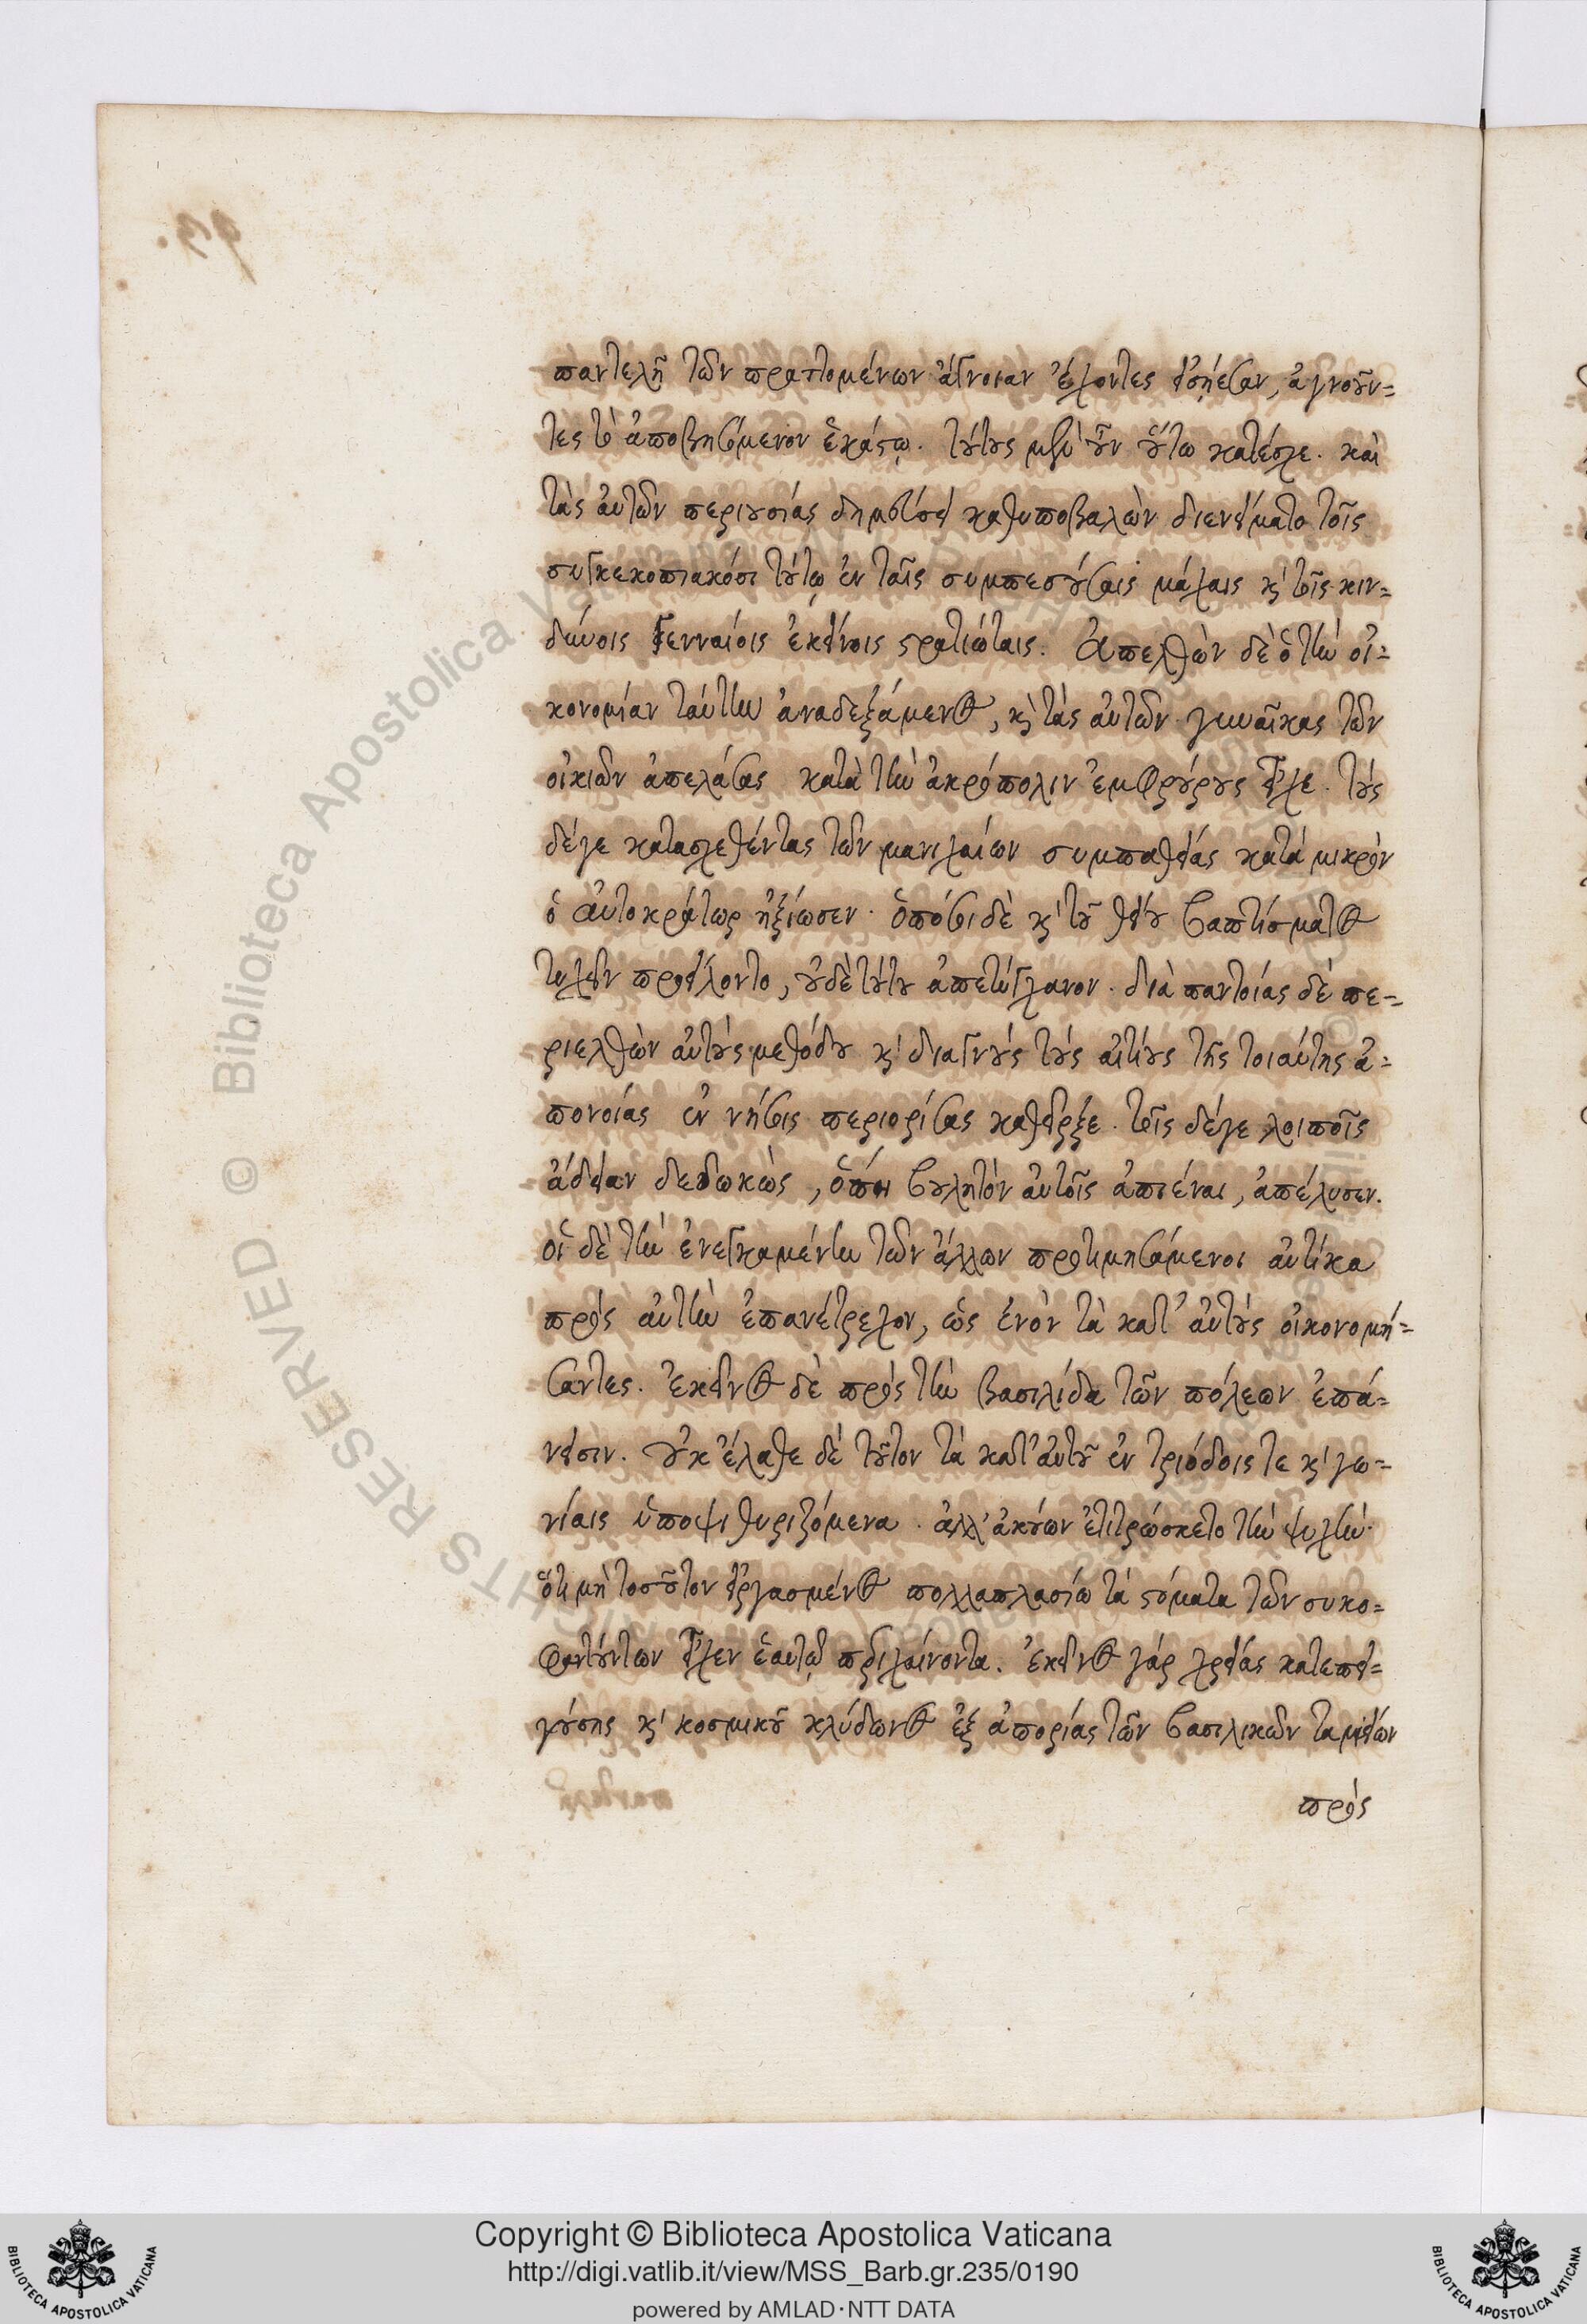 παντελῆ τῶν πραττομένων ἄγνοιαν ἔχοντες εἰσῄεσαν, ἀγνοοῦν=
τες τὸ ἀποβησόμενον ἑκάστῳ. τούτους μὲν οὖν οὕτω κατέσχε. καὶ
τὰς αὐτῶν περιουσίας δημεύσει καθυποβαλὼν διενείματο τοῖς
συγκεκοπιακόσι τούτῳ ἐν ταῖς συμπεσούσαις μάχαις κ̀ τοῖς κιν=
δύνοις γενναίοις ἐκείνοις στρατιώταις. Ἀπελθὼν δὲ ὁ τὴν οἰ=
κονομίαν ταύτην ἀναδεξάμενος, κ̀ τὰς αὐτῶν γυναῖκας τῶν
οἰκιῶν ἀπελάσας κατὰ τὴν ἀκρόπολιν ἐμφρούρους εἶχε. τοὺς
δέγε κατασχεθέντας τῶν μανιχαίων συμπαθείας κατὰ μικρὸν
ὁ αὐτοκράτωρ ἠξίωσεν. ὁπόσοι δὲ κ̀ τοῦ θείου βαπτίσματος
τυχεῖν προείχοντο, οὐδὲ τούτου ἀπετύγχανον. διὰ παντοίας δὲ πε=
ριελθὼν αὐτοὺς μεθόδου κ̀ διαγνοὺς τοὺς αἰτίους τῆς τοιαύτης ἀ=
πονοίας ἐν νήσοις περιορίσας καθεῖρξε. τοῖς δέγε λοιποῖς
ἄδειαν δεδωκὼς, ὅπη βουλητὸν αὐτοῖς ἀπιέναι, ἀπέλυσεν.
οἱ δὲ τὴν ἐνεγκαμένην τῶν ἄλλων προτιμησάμενοι αὐτίκα
πρὸς αὐτὴν ἐπανέτρεχον, ὡς ἐνὸν τὰ κατ' αὐτοὺς οἰκονομή=
σαντες. Ἐκεῖνος δὲ πρὸς τὴν βασιλίδα τῶν πόλεων ἐπά=
νεισιν. οὐκ ἔλαθε δὲ τοῦτον τὰ κατ' αὐτοῦ ἐν τριόδοις τε κ̀ γω=
νίαις ὑποψιθυριζόμενα. ἀλλ' ἀκούων ἐτιτρώσκετο τὴν ψυχὴν
ὅτι μὴ τοσοῦτον εἰργασμένος πολλαπλασίω τὰ στόματα τῶν συκο=
φαντούντων εἶχεν ἑαυτῷ περιχαίνοντα. ἐκεῖνος γὰρ χρείας κατεπει=
γούσης κ̀ κοσμικοῦ κλύδωνος ἐξ ἀπορίας τῶν βασιλικῶν ταμιείων
πρὸς
Copyright © Biblioteca Apostolica Vaticana
http://digi.vatlib.it/view/MSS_Barb.gr.235/0190
powered by AMLAD·NTT DATA